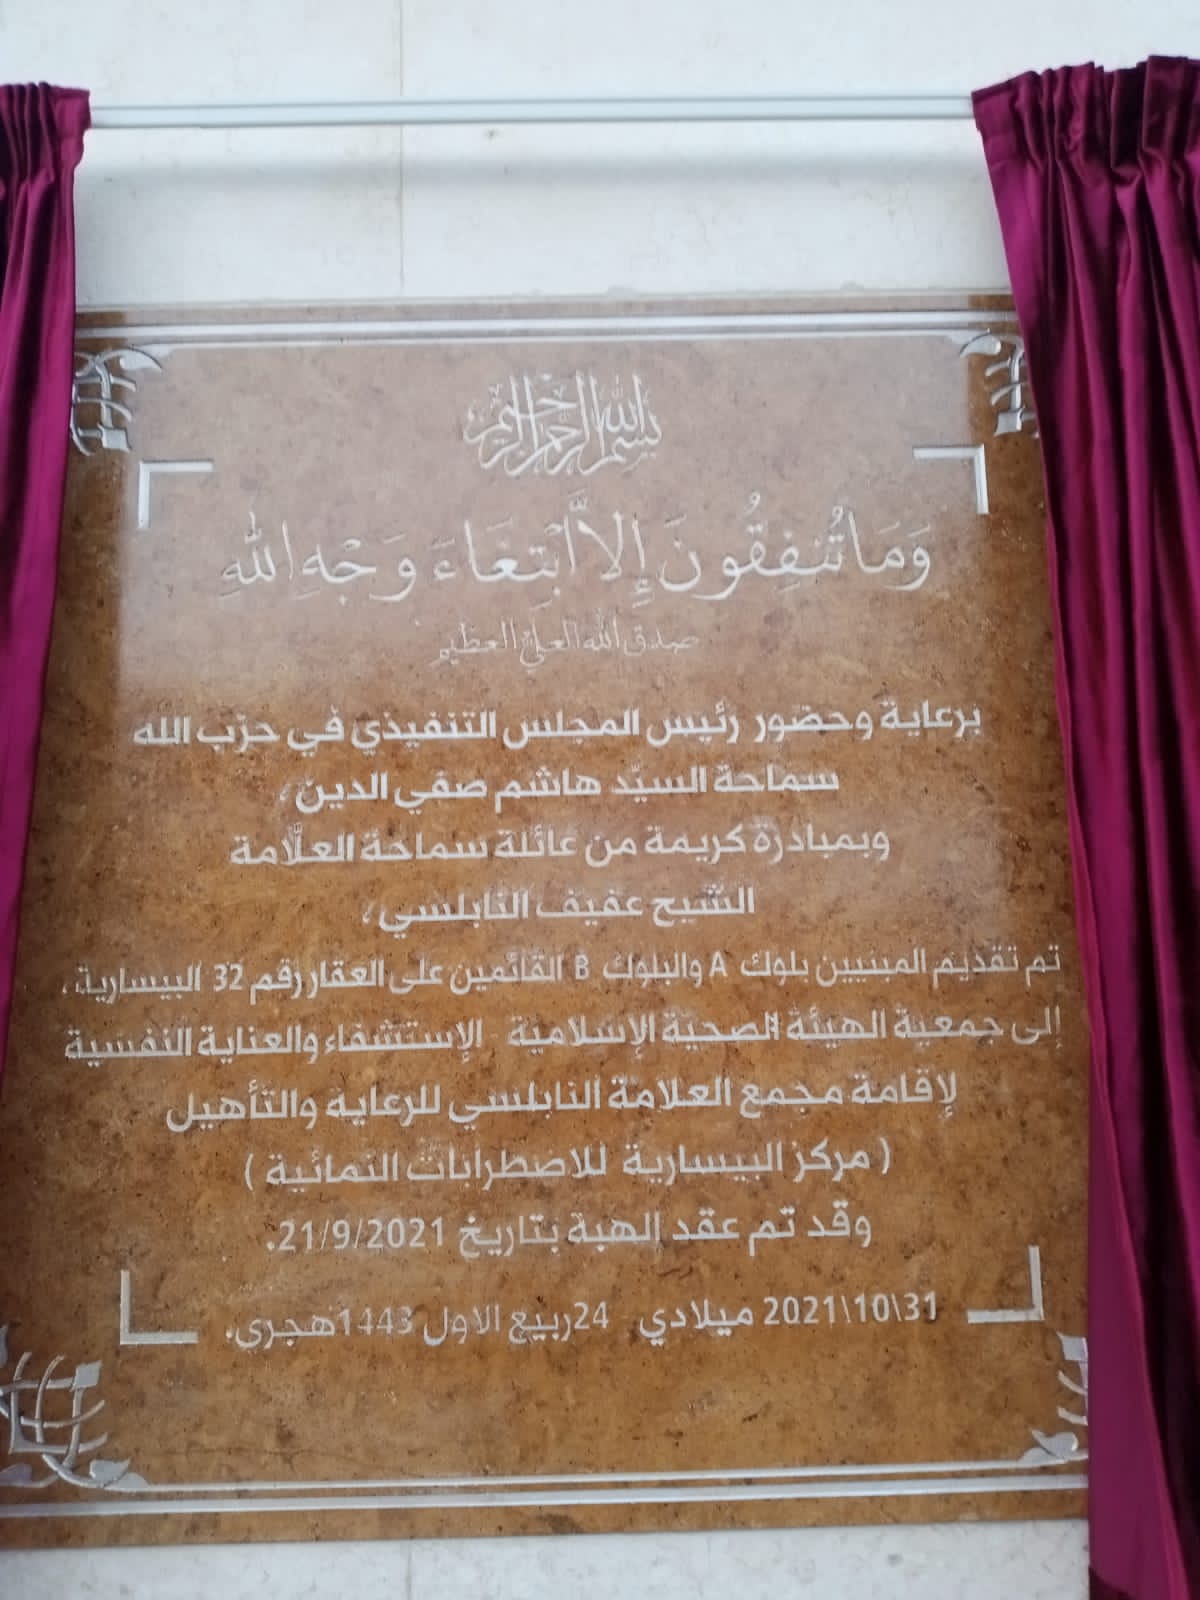 بسم الله الرحمن الرحيم
وَمَا تُنفِقُونَ إِلاَّ ابْتِغَاءَ وَجْهِ اللهِ
صدق الله العلي العظيم
برعاية وحضور رئيس المجلس التنفيذي في حزب الله
سماحة السيّد هاشم صفي الدين،
وبمبادرة كريمة من عائلة سماحة العلّامة
الشيخ عفيف النابلسي،
تم تقديم المبنيين بلوك A والبلوك B القائمين على العقار رقم 32 البيسارية،
إلى جمعية الهيئة الصحية الإسلامية الإستشفاء والعناية النفسية
لإقامة مجمع العلامة النابلسي للرعاية والتأهيل
( مركز البيسارية للاضطرابات النمائية )
وقد تم عقد الهبة بتاريخ 21/9/2021.
31\10\2021 ميلادي 24ربيع الاول 1443هجري.